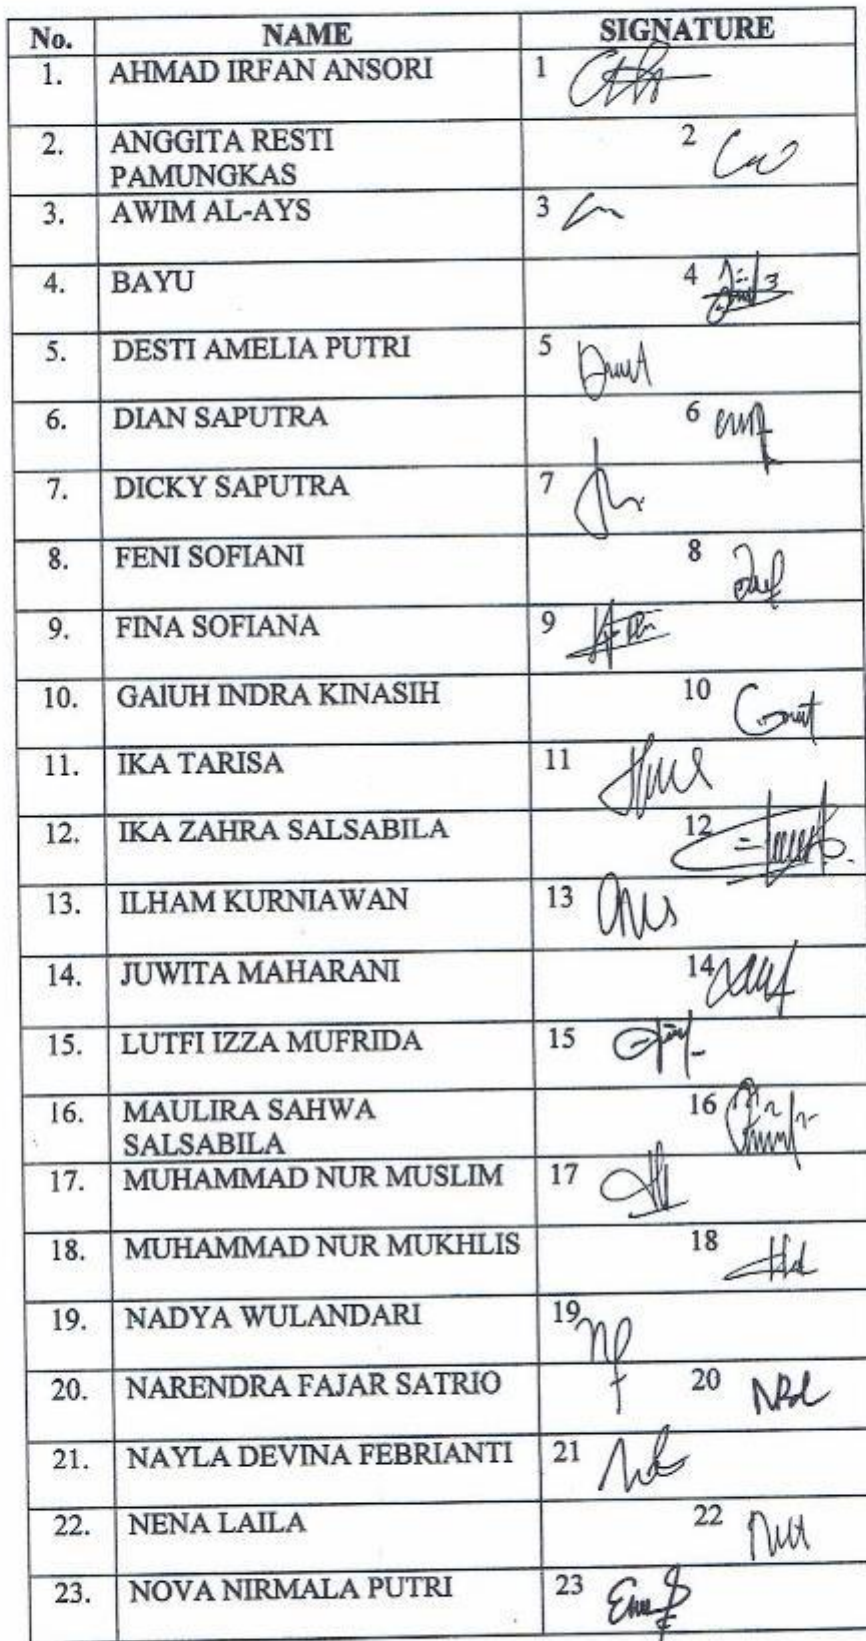 No. NAME SIGNATURE
1. AHMAD IRFAN ANSORI 1
2. ANGGITA RESTI 2
PAMUNGKAS
3. AWIM AL-AYS 3
4. BAYU 4
5. DESTI AMELIA PUTRI 5
6. DIAN SAPUTRA 6
7. DICKY SAPUTRA 7
8. FENI SOFIANI 8
9. FINA SOFIANA 9
10. GAlUH INDRA KINASIH 10
11. IKA TARISA 11
12. IKA ZAHRA SALSABILA 12
13. ILHAM KURNIAWAN 13
14. JUWITA MAHARANI 14
15. LUTFI IZZA MUFRIDA 15
16. MAULIRA SAHWA 16
SALSABILA
17. MUHAMMAD NUR MUSLIM 17
18. MUHAMMAD NUR MUKHLIS 18
19. NADYA WULANDARI 19
20. NARENDRA FAJAR SATRIO 20
21. NAYLA DEVINA FEBRIANTI 21
22. NENA LAILA 22
23. NOVA NIRMALA PUTRI 23